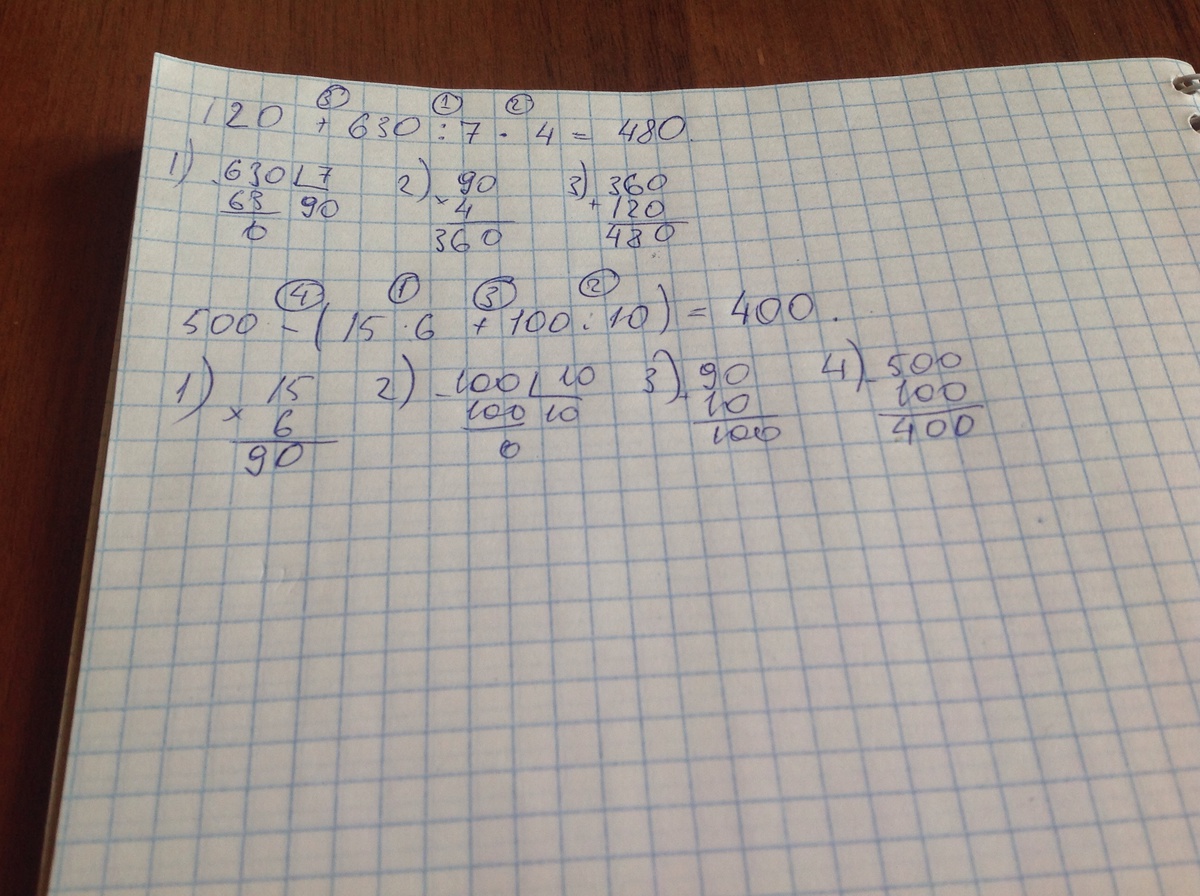 ③ ① ②
120 + 630 : 7 · 4 = 480.
1) 630 7 2) 90 3) 360
63 90 × 4 + 120
0 360 480
④ ① ③ ②
500 - ( 15 · 6 + 100 : 10 ) = 400.
1) 15 2) - 100 10 3) + 90 4) - 500
× 6 100 10 10 100
90 0 100 400